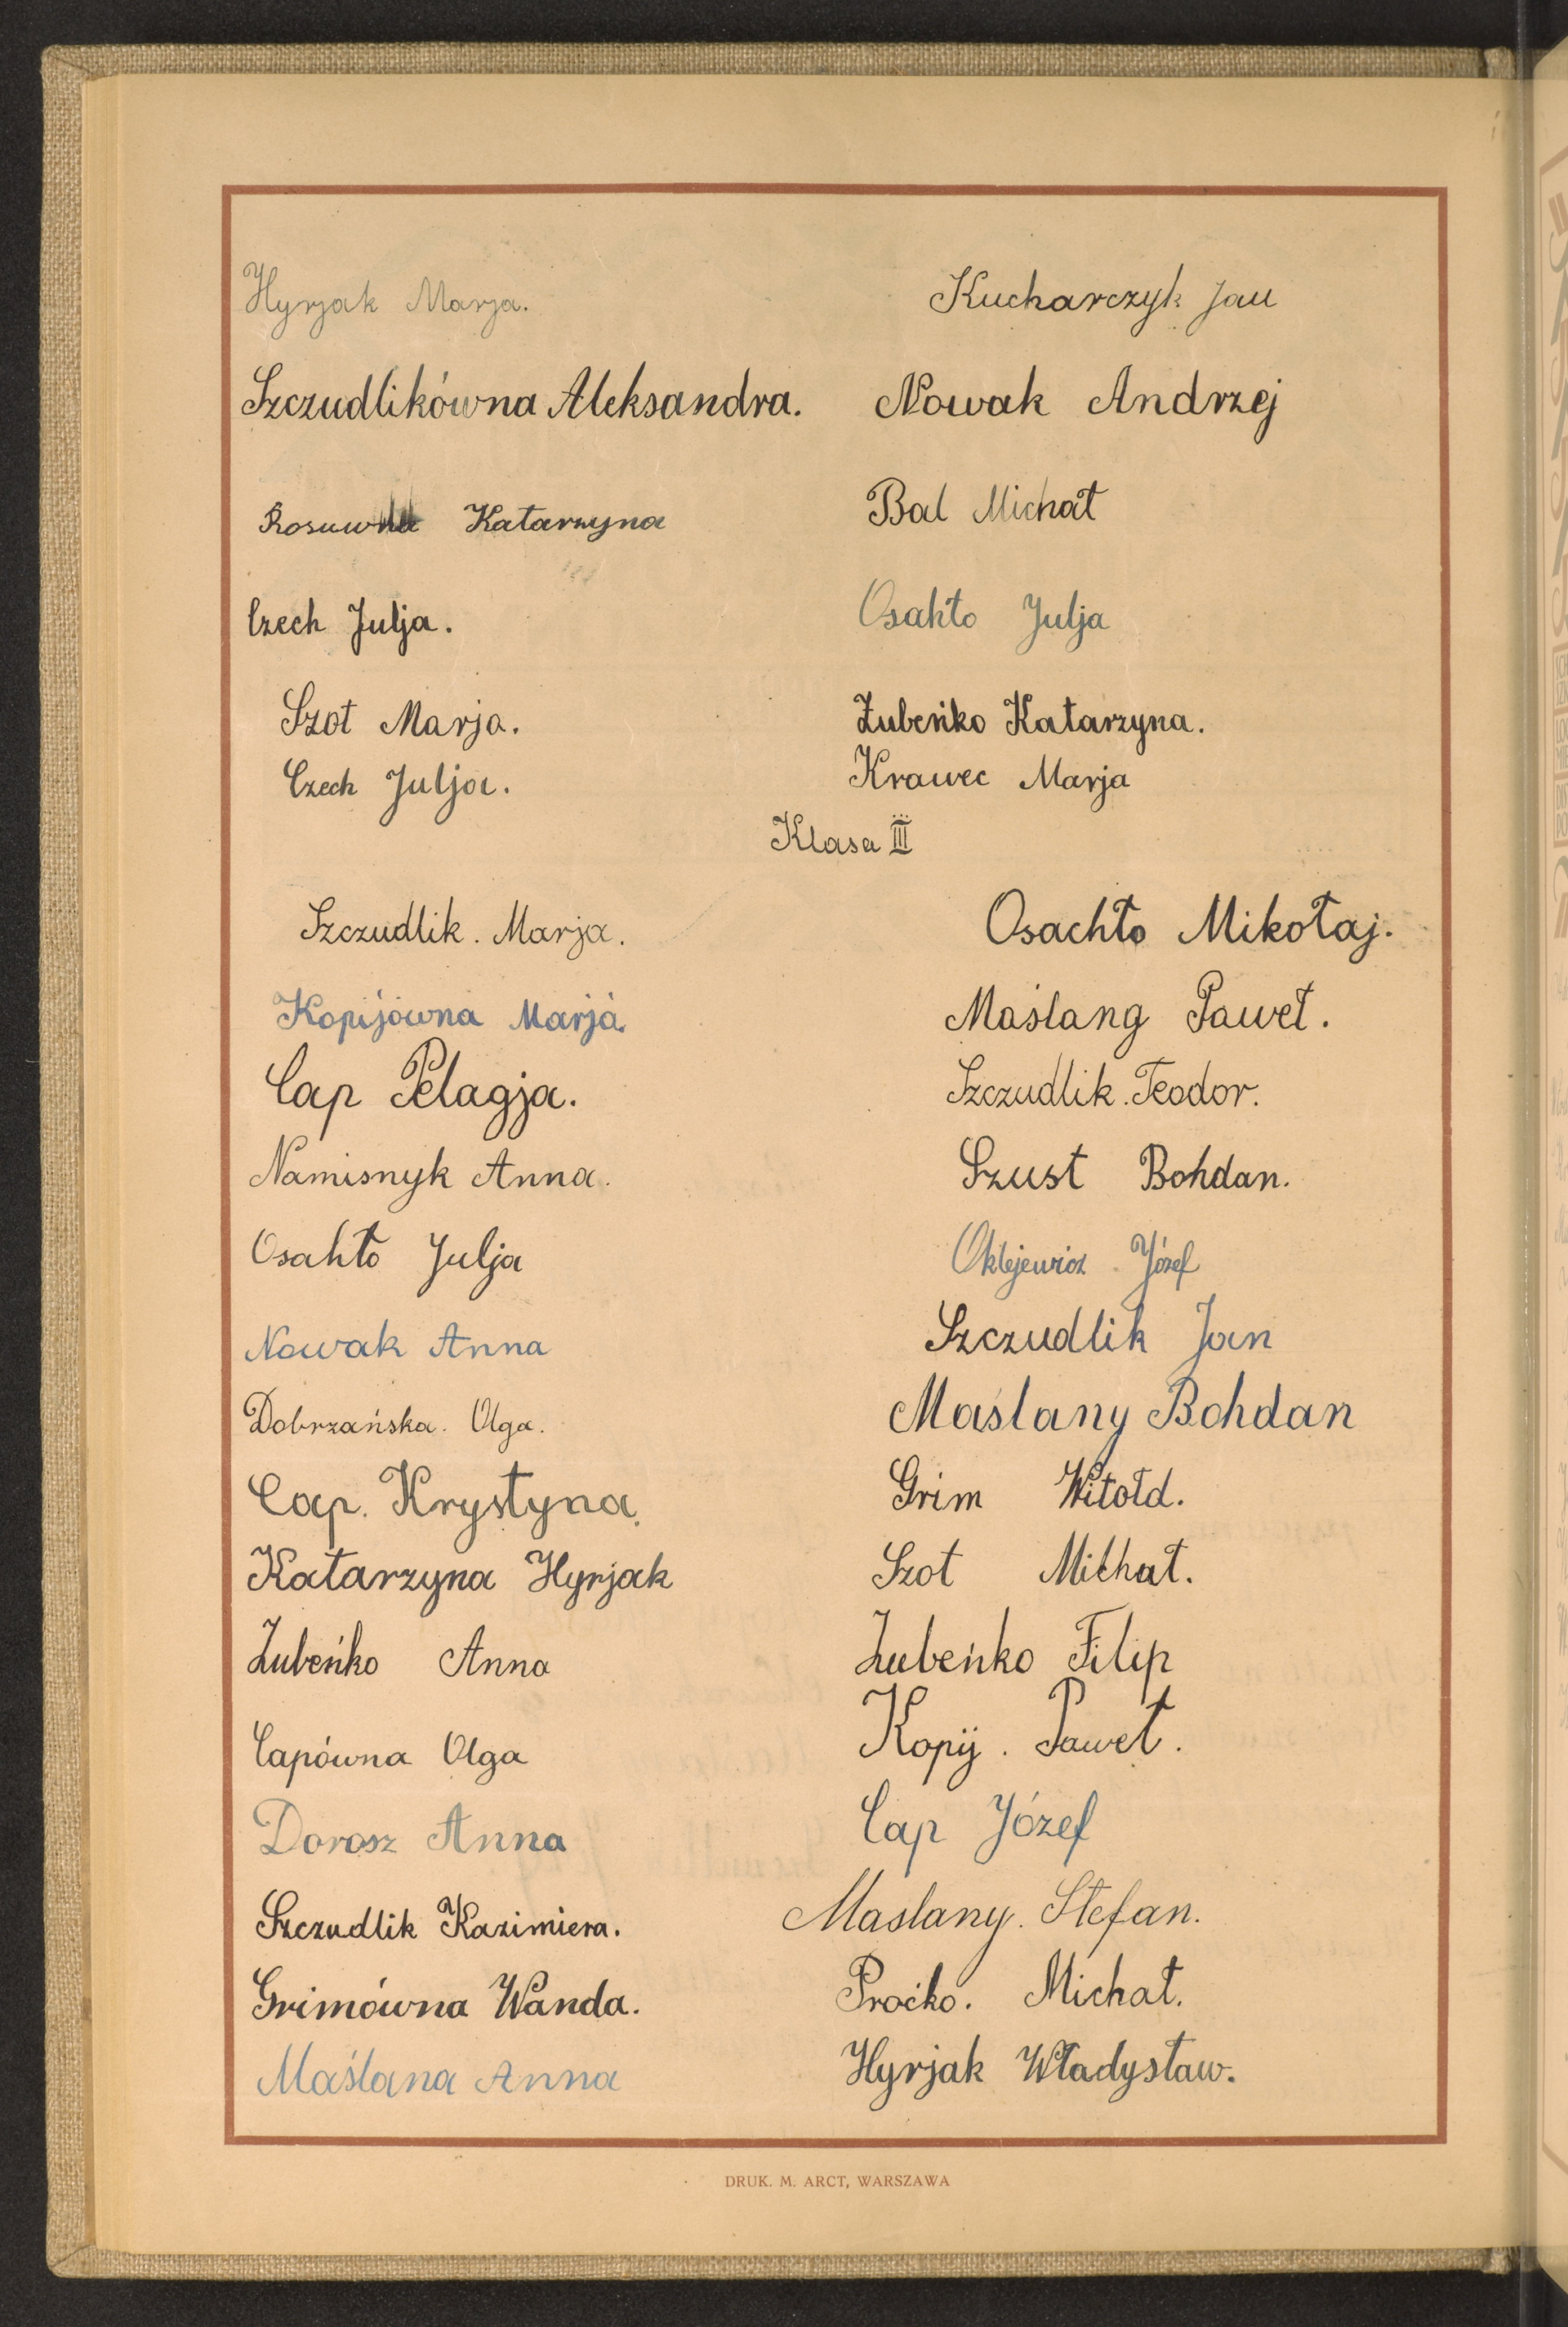 Hyrjak Marja.
Szczudlikówna Aleksandra.
Rosuwna Katarzyna
Czech Julja.
Szot Marja.
Czech Julja.
Kucharczyk Jan
Nowak Andrzej
Bal Michał
Osahło Julja
Łubeńko Katarzyna.
Krawec Marja
Klasa III
Szczudlik. Marja.
Kopijówna Marja
Cap Pelagja.
Namisnyk Anna.
Osahło Julja
Nowak Anna
Dobrzańska. Olga.
Cap. Krystyna.
Katarzyna Hyrjak
Łubeńko Anna
Capówna Olga
Dorosz Anna
Szczudlik Kazimiera.
Grimówna Wanda.
Maślana Anna
Osachło Mikołaj.
Maślang Paweł.
Szczudlik. Teodor.
Szust Bohdan.
Oklejewicz Józef
Szczudlik Jan
Maślany Bohdan
Grim Witołd.
Szot Michał.
Łubeńko Filip
Kopij. Paweł.
Cap Józef
Maslany. Stefan.
Proćko. Michał.
Hyrjak Władysław.
DRUK. M. ARCT, WARSZAWA